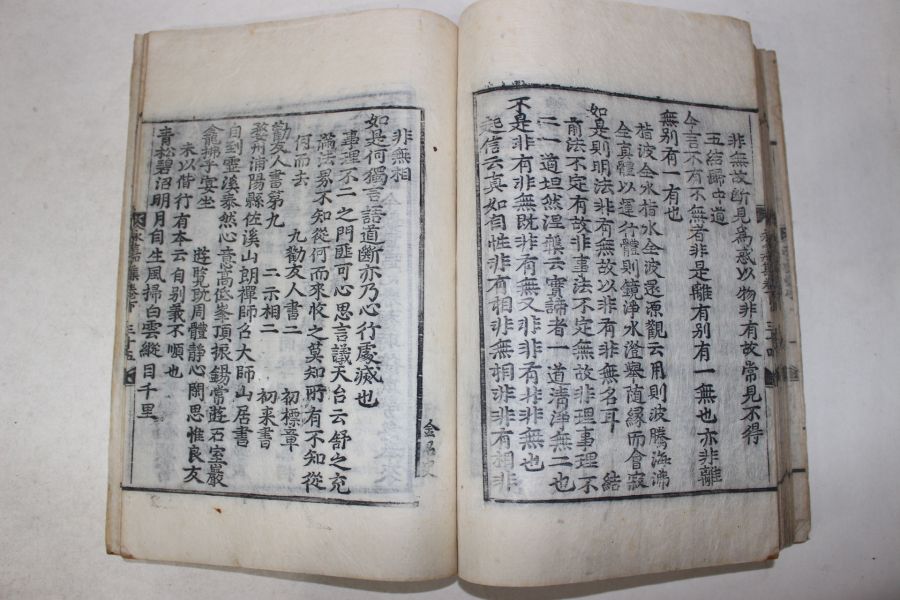 非無故斷見爲惑以物非有故常見不得
五結歸中道
今言不有不無者非是離有別有一無也亦非離
無別有一有也
楷波全水指水全波還源觀云用則波騰海沸
全真體以運行體則鏡淨水澄擧隨緣而會寂
如是則明法非有無故以非有非無名耳
結
前法不定有故非事法不定無故非理事理不
二一道坦然涅槃云實諦者一道淸淨無二也
不是非有非無旣非有無又非非有非非無也
起信云真如自性非有相非無相非非有相非
非無相
如是何獨言語道斷亦乃心行處滅也
事理不二之門匪可心思言議天台云舒之充
滿法界不知從何而來收之莫知所有不知從
何而去
九勸友人書二
初標章
勸友人書第九
二示相二
初來書
婺州浦陽縣佐溪山朗禪師召大師山居書
自到靈溪泰然心意高低峯頂振錫常遊石室巖
龕拂乎宴坐
遊覽旣周體靜心閑思惟良友
未以偕行有本云自別最不順也
靑松碧沼明月自生風掃白雲縱目千里
永嘉集卷下
三十五